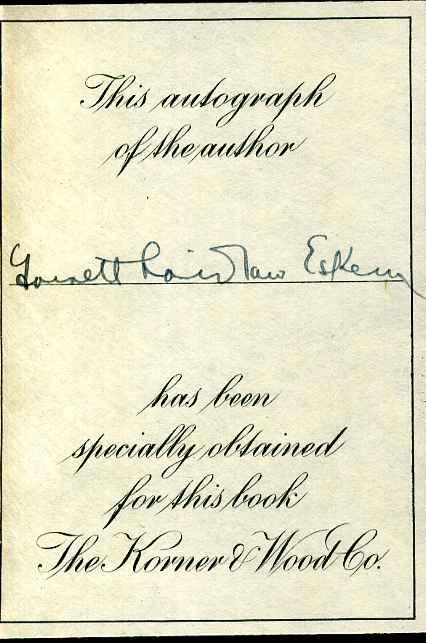 This autograph
of the author
Garnett Laidlaw Eskew
has been
specially obtained
for this book
The Korner & Wood Co.